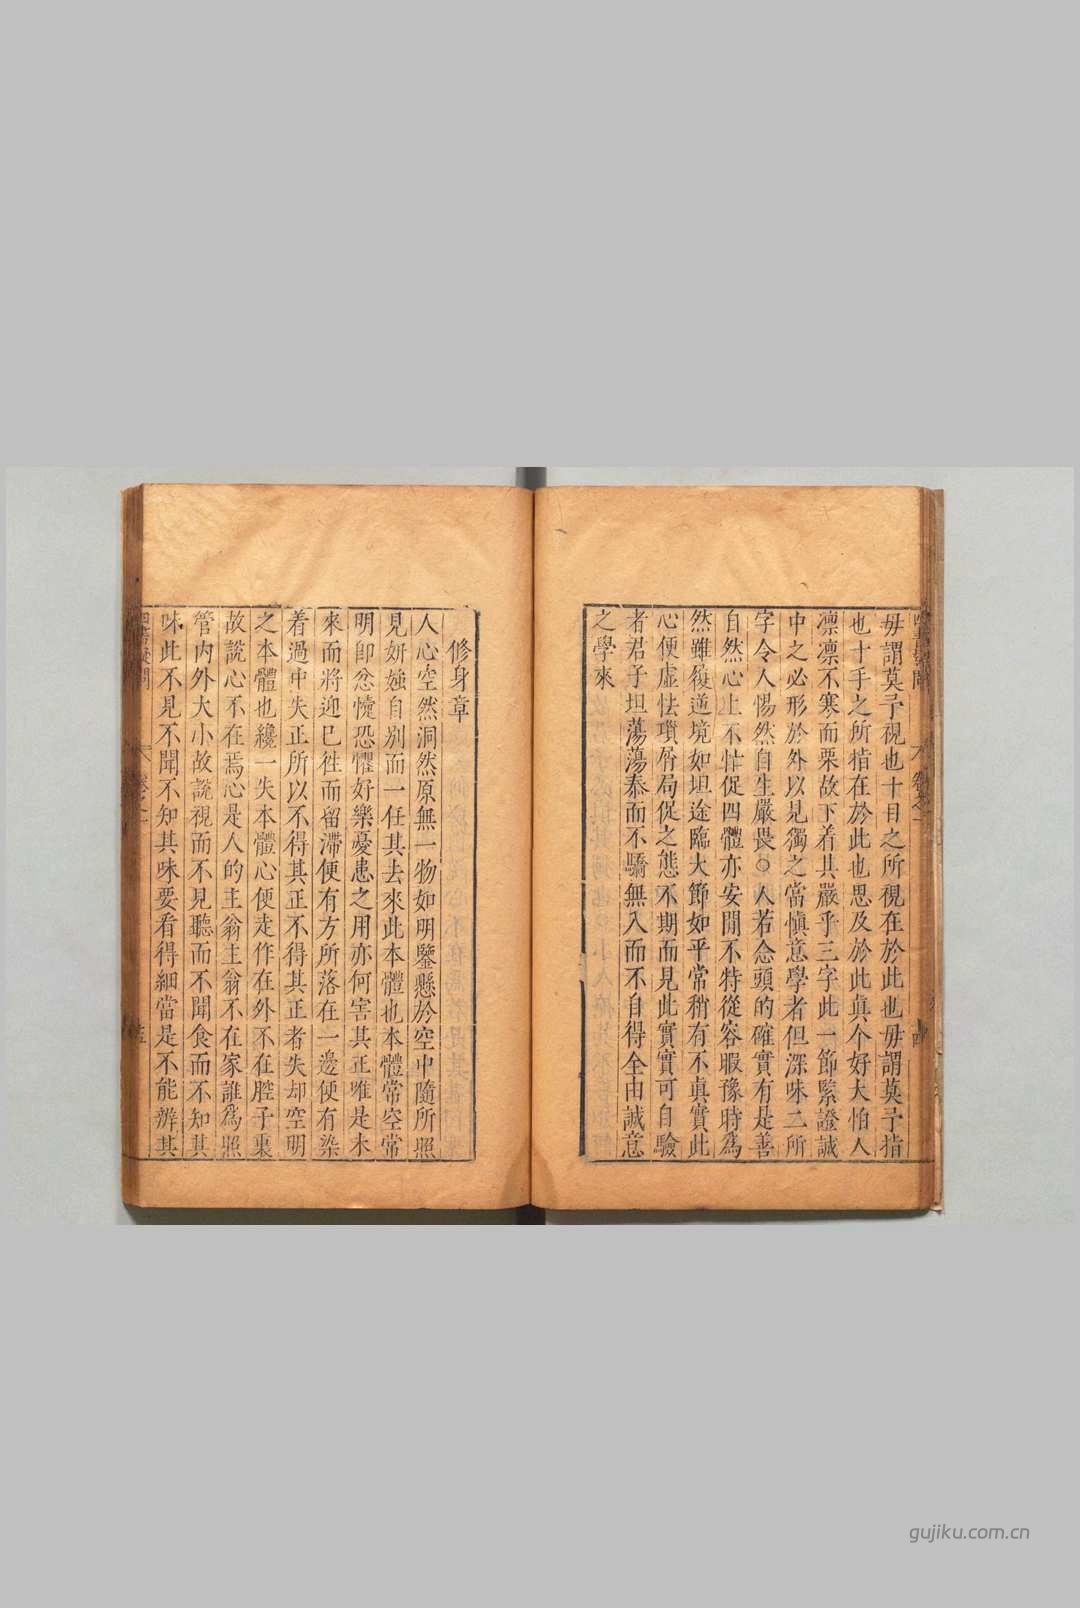 毋謂莫予視也十目之所視在於此也毋謂莫予指
也十手之所指在於此也思及於此真令好大怕人
凛凛不寒而栗故下着其嚴乎三字此一節緊證誠
中之必形於外以見獨之當慎意學者但深味二所
字令人惕然自生嚴畏○人若念頭的確實有是善
自然心上不忙促四體亦安閒不特從容暇豫時為
然雖履逆境如坦途臨大節如平常稍有不真實此
心便虛怯瑣屑局促之態不期而見此實實可自驗
者君子坦蕩蕩泰而不驕無入而不自得全由誠意
之學來
修身章
人心空然洞然原無一物如明鑒懸於空中隨所照
見妍媸自别而一任其去來此本體也本體常空常
明卽忿懥恐懼好樂憂患之用亦何害其正唯是未
來而將迎已徃而留滯便有方所落在一邊便有染
着過中失正所以不得其正不得其正者失却空明
之本體也纔一失本體心便走作在外不在腔子裏
故說心不在焉心是人的主翁主翁不在家誰為照
管内外大小故說視而不見聽而不聞食而不知其
味此不見不聞不知其味要看得細當是不能辨其
卷之一
gujiku.com.cn